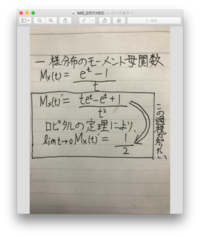 一様分布のモーメント母関数
Mx(t)= e^t-1 / t
Mx(t)'= te^t-e^t+1 / t²
ロピタルの定理により、
lim t→0 Mx(t)' = 1/2
この過程が知りたい